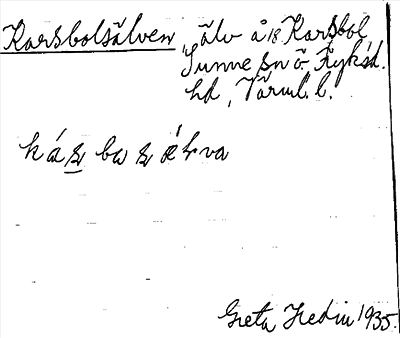 Karsbolsälven älv å 18 Karsbol
Sunne sn ö. Fryksd.
hd, Värml. l.
Greta Hedin 1935.